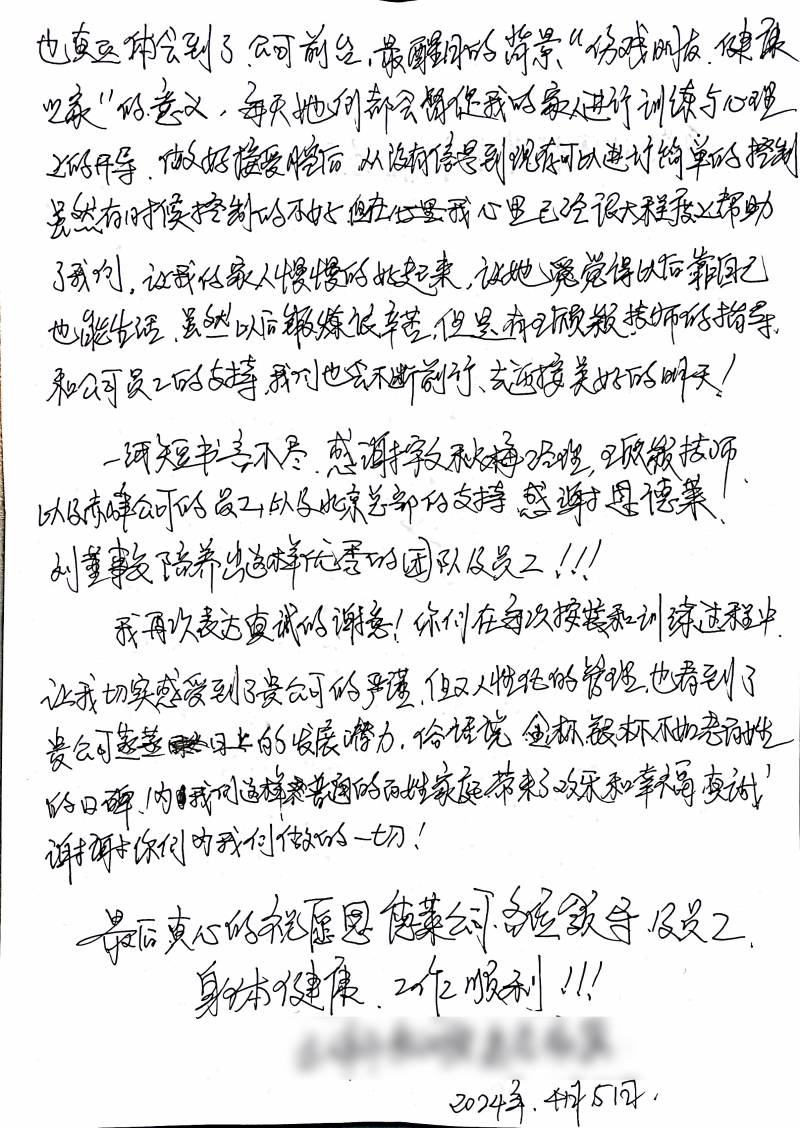 也真正体会到了.公司前台,最醒目的背景"伤残朋友.健康
之家"的意义,每天她们都会督促我的家人进行训练与心理
上的开导.做好接受腔后 从没有信息到现在可以进行简单的控制
虽然有时候控制的不好 但在心里我心里已经很大程度上帮助
了我们,让我的家人慢慢的好起来,让她感觉得以后靠自己
也能生活.虽然以后锻炼很辛苦,但是有王欣颖技师的指导,
和公司员工的支持,我们也会不断前行、去迎接美好的明天!
一纸短书言不尽.感谢宇文秋梅经理,王欣颖技师
以及赤峰公司的员工,以及北京总部的支持 感谢恩德莱!
刘董事长陪养出这样优秀的团队及员工!!!
我再次表达真诚的谢意!你们在每次按装和训练过程中
让我切实感受到了贵公司的严谨,但又人性化的管理,也看到了
贵公司蒸蒸日上的发展潜力.俗语说 金杯银杯不如老百姓
的口碑!为我们这样普通的百姓家庭带来了欢乐和幸福 真诚
谢谢你们为我们做的一切!
最后真心的祝愿恩德莱公司.各位领导及员工.
身体健康.工作顺利!!!
2024年.